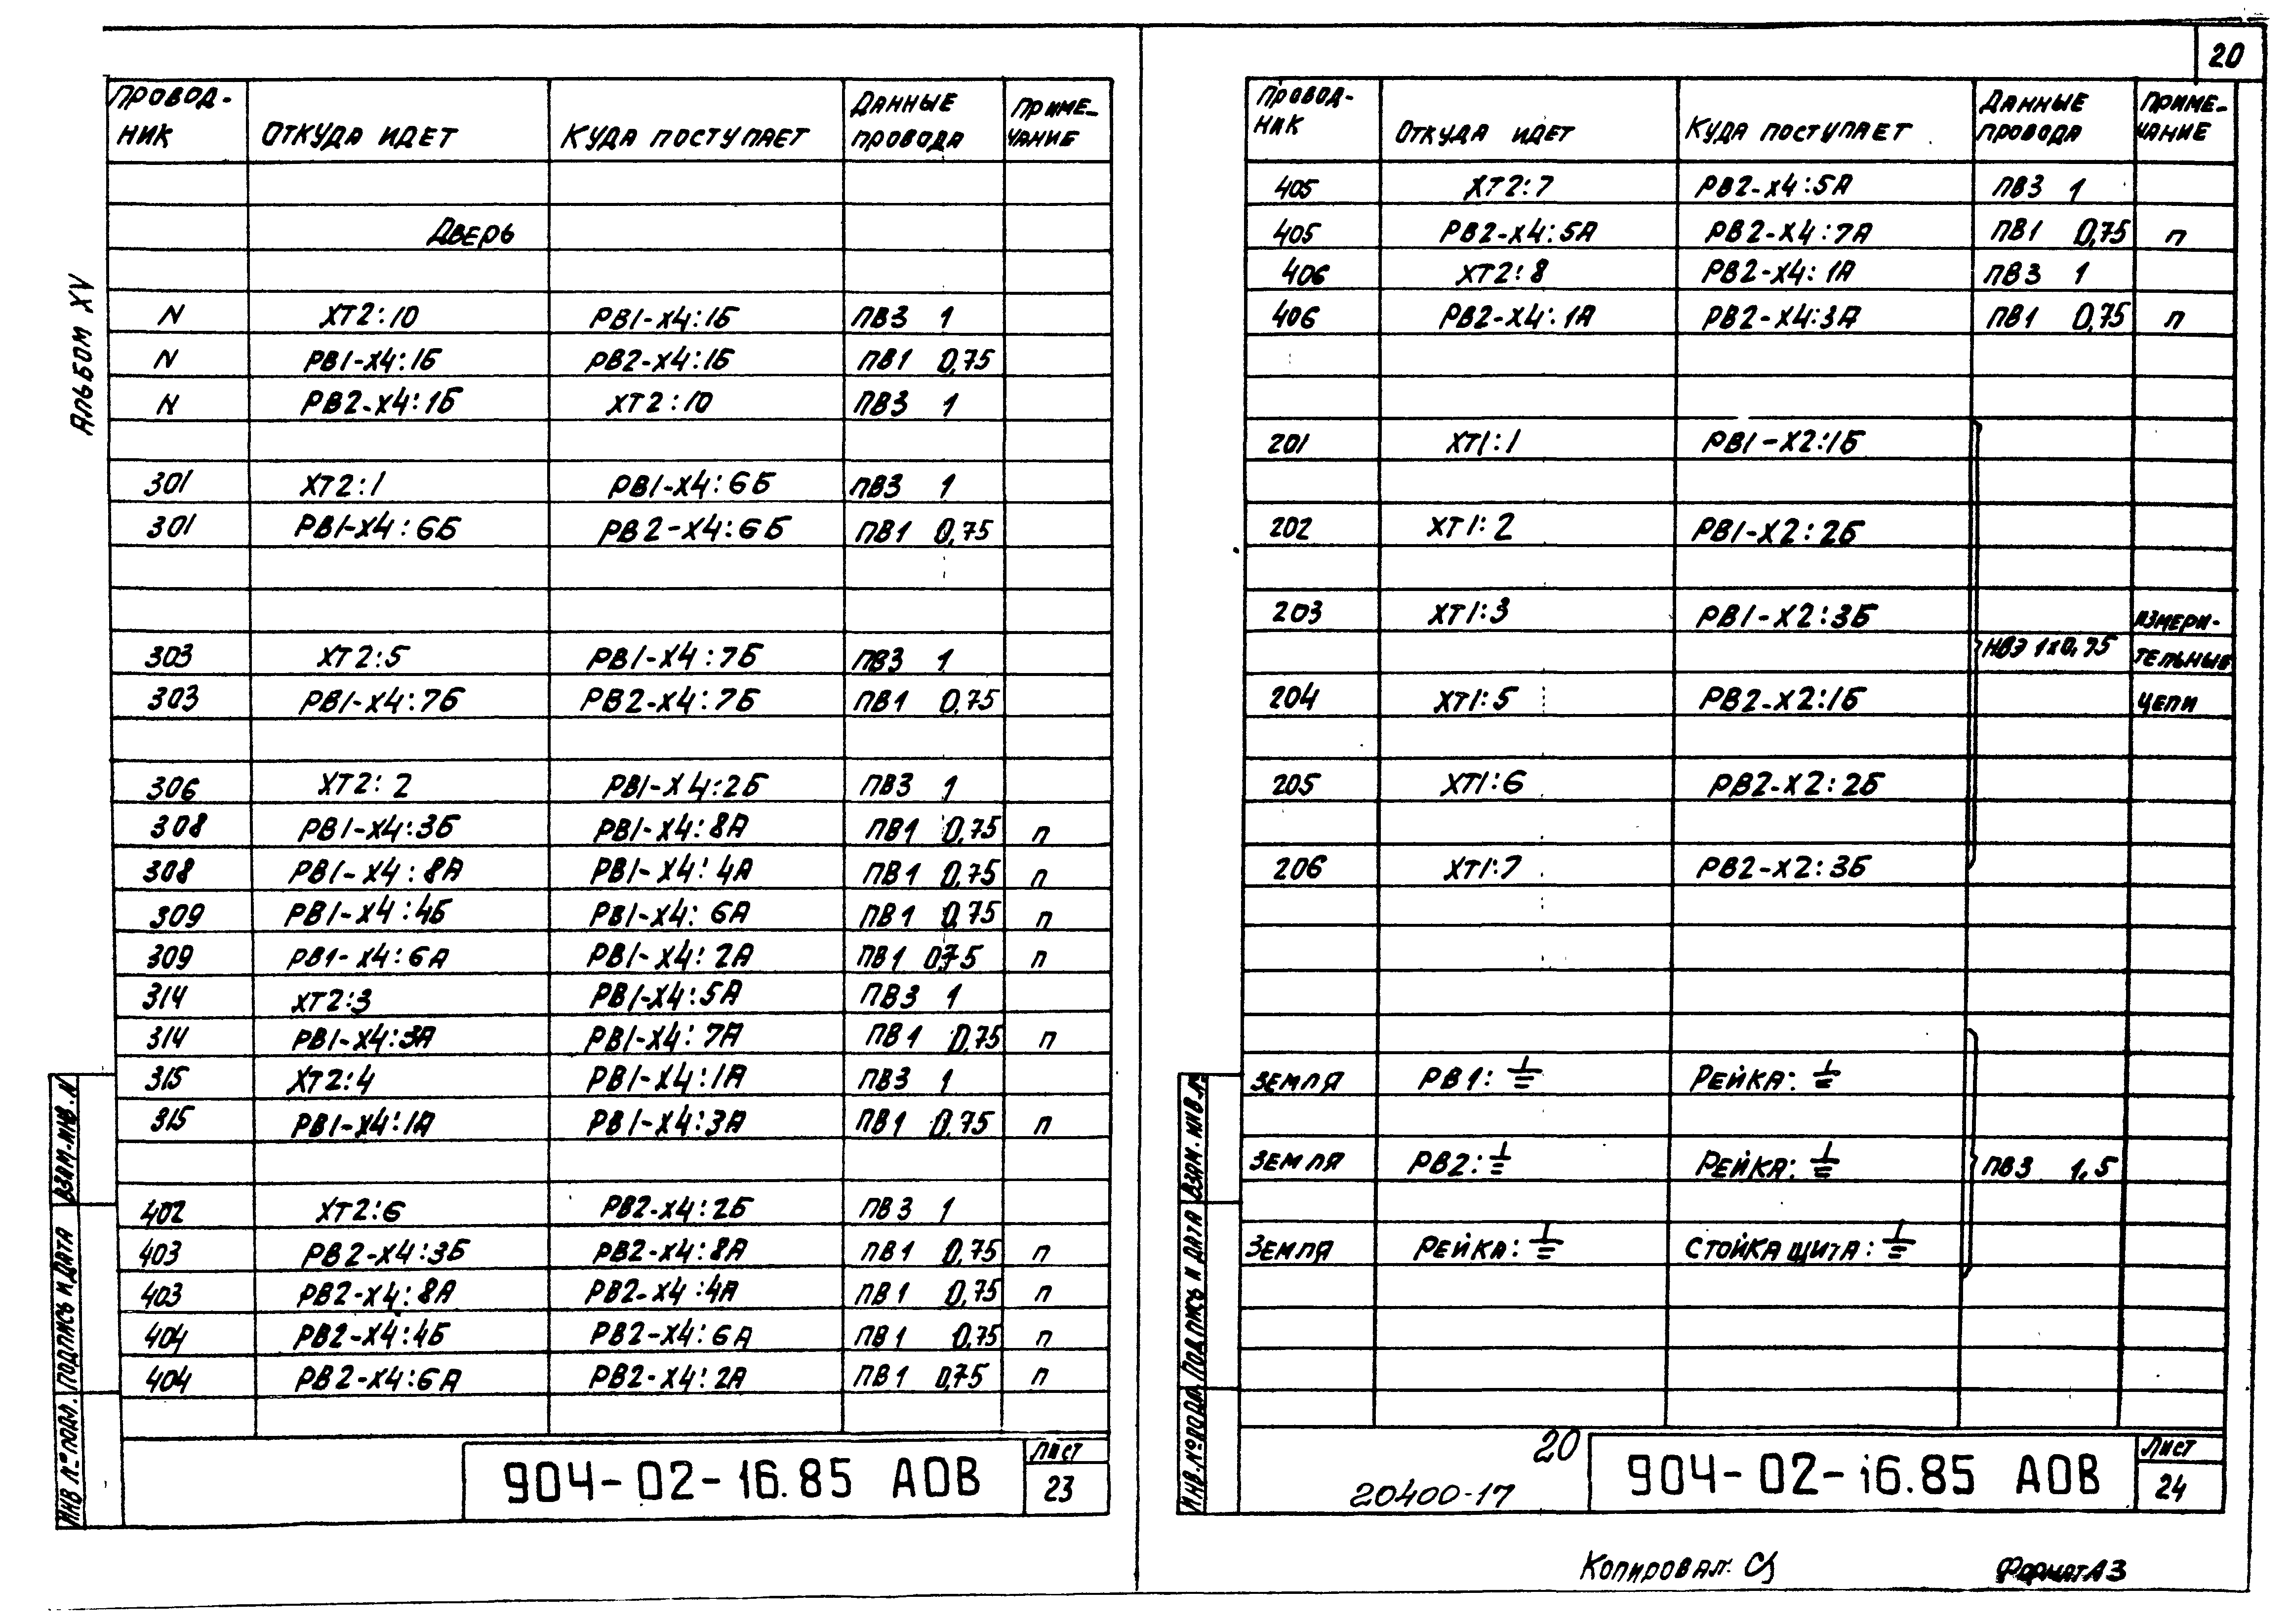 20
Альбом XV
Провод-
ник Откуда идет Куда поступает Данные
провода Приме-
чание
Дверь
N ХТ2:10 РВ1-Х4:1Б ПВ3 1
N РВ1-Х4:1Б РВ2-Х4:1Б ПВ1 0,75
N РВ2-Х4:1Б ХТ2:10 ПВ3 1
301 ХТ2:1 РВ1-Х4:6Б ПВ3 1
301 РВ1-Х4:6Б РВ2-Х4:6Б ПВ1 0,75
303 ХТ2:5 РВ1-Х4:7Б ПВ3 1
303 РВ1-Х4:7Б РВ2-Х4:7Б ПВ1 0,75
306 ХТ2:2 РВ1-Х4:2Б ПВ3 1
308 РВ1-Х4:3Б РВ1-Х4:8А ПВ1 0,75 п
308 РВ1-Х4:8А РВ1-Х4:4А ПВ1 0,75 п
309 РВ1-Х4:4Б РВ1-Х4:6А ПВ1 0,75 п
309 РВ1-Х4:6А РВ1-Х4:2А ПВ1 0,75 п
314 ХТ2:3 РВ1-Х4:5А ПВ3 1
314 РВ1-Х4:3А РВ1-Х4:7А ПВ1 0,75 п
315 ХТ2:4 РВ1-Х4:1А ПВ3 1
315 РВ1-Х4:1А РВ1-Х4:3А ПВ1 0,75 п
402 ХТ2:6 РВ2-Х4:2Б ПВ3 1
403 РВ2-Х4:3Б РВ2-Х4:8А ПВ1 0,75 п
403 РВ2-Х4:8А РВ2-Х4:4А ПВ1 0,75 п
404 РВ2-Х4:4Б РВ2-Х4:6А ПВ1 0,75 п
404 РВ2-Х4:6А РВ2-Х4:2А ПВ1 0,75 п
Инв №подл. Подпись и дата Взам.инв.N
904-02-16.85 АОВ
Лист
23
Провод-
ник Откуда идет Куда поступает Данные
провода Приме-
чание
405 ХТ2:7 РВ2-Х4:5А ПВ3 1
405 РВ2-Х4:5А РВ2-Х4:7А ПВ1 0,75 п
406 ХТ2:8 РВ2-Х4:1А ПВ3 1
406 РВ2-Х4:1А РВ2-Х4:3А ПВ1 0,75 п
201 ХТ1:1 РВ1-Х2:1Б
202 ХТ1:2 РВ1-Х2:2Б
203 ХТ1:3 РВ1-Х2:3Б Измери-
НВЭ 1х0,75 тельные
204 ХТ1:5 РВ2-Х2:1Б цепи
205 ХТ1:6 РВ2-Х2:2Б
206 ХТ1:7 РВ2-Х2:3Б
Земля РВ1:⏚ Рейка:⏚
Земля РВ2:⏚ Рейка:⏚ ПВ3 1,5
Земля Рейка:⏚ Стойка щита:⏚
Инв.№подл. Подпись и дата Взам.инв.№
20
20400-17
904-02-16.85 АОВ
Лист
24
Копировал:
Формат А3